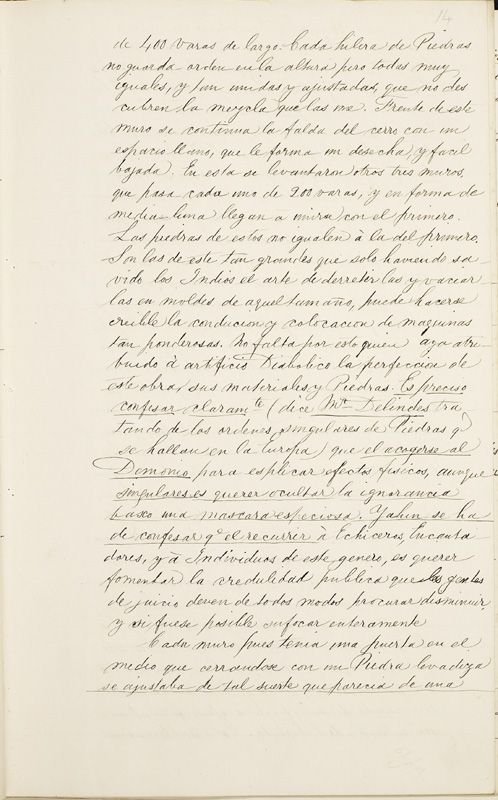 14
de 400 varas de largo. Cada hilera de Piedras
no guarda orden en la altura pero todas muy
iguales, y tan unidas y ajustadas, que no des
cubren la mezcla que las une. Frente de este
muro se continua la falda del cerro con un
espacio llano, que le forma un desecha, y facil
bajada. En esta se levantaron otros tres muros,
que pasa cada uno de 200 varas, y en forma de
media luna llegan a unirse con el primero.
Las piedras de estos no igualen à la del primero.
Son los de este tan grandes que solo haviendo sa
vido los Indios el arte de derretirlas y vaciar
las en moldes de aquel tamaño, puede hacerse
creible la conducion y colocacion de maquinas
tan ponderosas. No falta por esto quien aya atri
buido à artificio Diabolico la perfeccion de
este obra, sus materiales y Piedras. Es preciso
confesar claramte (dice Mr. Delindes tra
tando de los ordenes singulares de Piedras q
se hallan en la Europa) que el acogerse al
Domonio para esplicar efectos fisicos, aunque
singulares es querer ocultar la ignorancia
baxo una mascara especiosa. Y ahun se ha
de confesar q.e el recurrir à Echiceros, Encanta
dores, y à Individuos de este genero, es querer
fomentar la credulidad publica que las gentes
de juicio deven de todos modos procurar disminuir,
y si fuese posible sufocar enteramente
Cada muro pues tenia una puerta en el
medio que cerrandose con un Piedra levadiza
se ajustaba de tal suerte que parecia de una